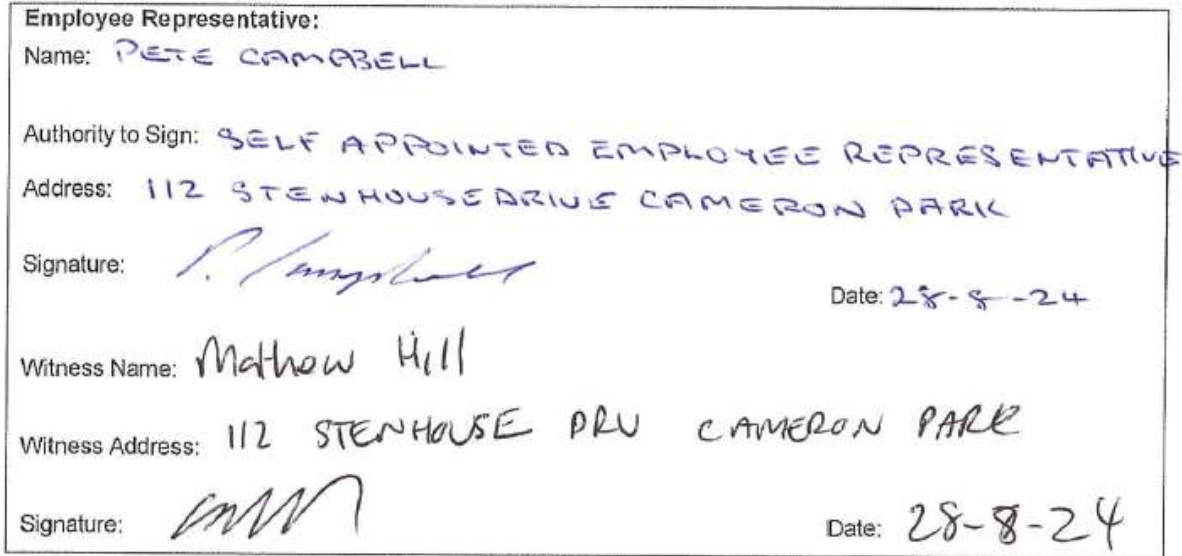 Employee Representative:
Name: PETE CAMPBELL
Authority to Sign: SELF APPOINTED EMPLOYEE REPRESENTATIVE
Address: 112 STENHOUSE DRIVE CAMERON PARK
Signature: P. Campbell
Date: 28-8-24
Witness Name: Mathew Hill
Witness Address: 112 STENHOUSE DRV CAMERON PARK
Signature:
Date: 28-8-24